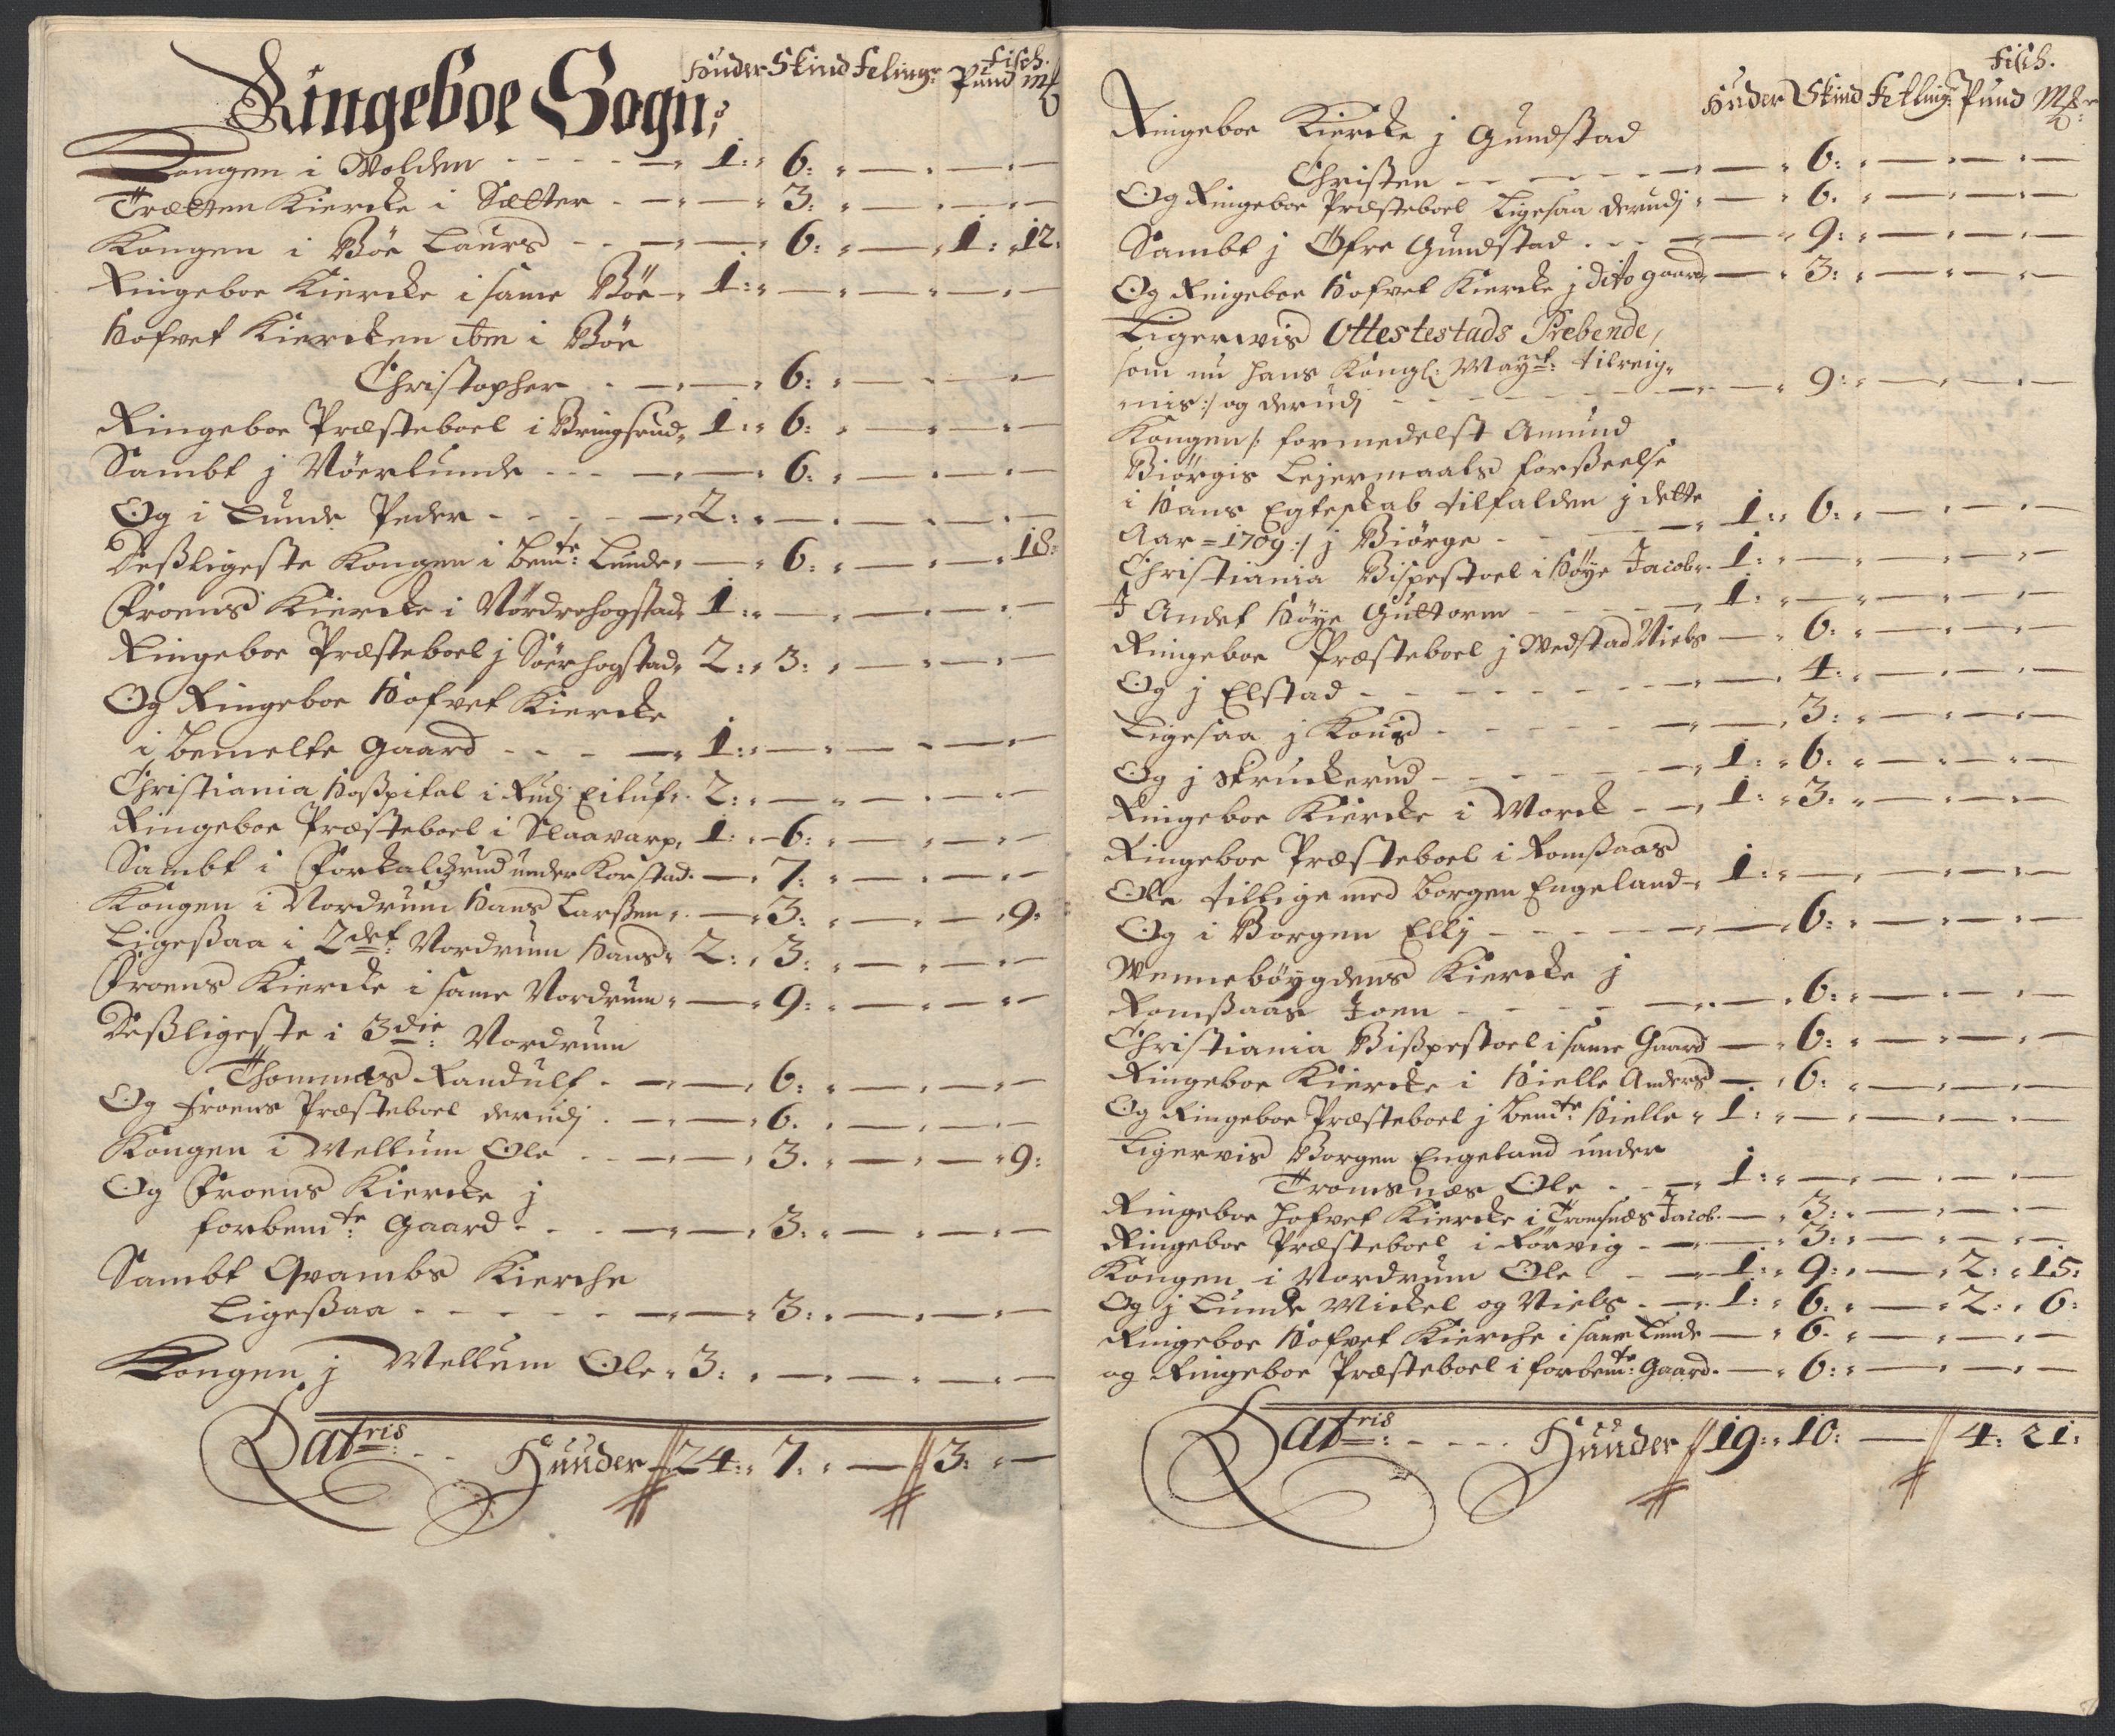 Ringeboe Sogn;
Huder Skind Felinge Pund Mk
Fisch.
Kongen i Wolden - - - - — 1: 6: — — —
Trætten Kiercke i Sætter - — — 3: — — —
Kongen i Böe Laurs - - — — 6: — 1: 12:
Ringeboe Kiercke i same Böe — 1: — — — —
Hofvet Kiercken ibm i Böe
Christopher - — — 6: — — —
Ringeboe Præsteboel i Bringsrud 1: 6: — — —
Sambt j Nöerlunde - - - — — 6: — — —
Og i Lunde Peder - - - - — 2: — — — —
Desligeste Kongen i bemte: Lunde — 6: — — 18:
Froens Kiercke i Nørdrehogstad 1: — — — —
Ringeboe Præsteboel j Söerhogstad 2: 3: — — —
Og Ringeboe Hofvet Kiercke
i bemelte Gaard - - - — 1: — — — —
Christiania Hoßpital i Rudj Eiluf 2: — — — —
Ringeboe Præsteboel i Slaavarp 1: 6: — — —
Sambt i Forkalsrud under Korstad — 7: — — —
Kongen i Nordrum Hans Larßen — 3: — — 9:
Ligeßaa i 2det Nordrum Hans 2: 3: — — —
Froens Kiercke i same Nordrum — 9: — — —
Desligeste i 3die: Nordrum
Thommes Randulf - — — 6: — — —
Og Froens Præsteboel derudj - — — 6. — — —
Kongen i Mellum Ole - - — — 3. — — 9:
Og Froens Kiercke j
forbemte: Gaard - - - — — 3: — — —
Sambt Qvambs Kierche
Ligeßaa - - - - - — — 3: — — —
Kongen j Mellum Ole 3: — — — —
Latris: - - Huuder 24: 7: — 3: —
Fisch.
Huder Skind Fetlinge Pund Mkr
Ringeboe Kiercke j Gundstad
Christen - - - - — — 6: — — —
Og Ringeboe Præsteboel Ligesaa derudj — 6: — — —
Sambt j Öfre Gundstad - - — — 9: — — —
Og Ringeboe Hofvet Kiercke j dito gaard — 3: — — —
Ligerwis Ottestestads Prebende,
som nu hans Kongl: Mayt: tilreig-
nis :/ og derudj - - - - - — — 9: — — —
Kongen /: formedelst Amund
Biörgis Lejermaals forßeelse
i Hans Egteskab tilfalden j dette
Aar = 1709 :/ j Biörge - - - — 1: 6: — — —
Christiania Bispestoel i Höye Jacob 1: — — — —
J Andet Höye Guttorm - - - — 1: — — — —
Ringeboe Præsteboel j Wedstad Niels — 6: — — —
Og j Elstad - - - - - - — — 4: — — —
Ligesaa j Konid - - - - - — — 3: — — —
Og j Skruckerud - - - - - — 1: 6: — — —
Ringeboe Kiercke i Morck - — 1: 3: — — —
Ringeboe Præsteboel i Romßaas
Ole tillige med Borgen Engeland 1: — — — —
Og i Borgen Ellj - - - - — — 6: — — —
Wennebøygdens Kiercke j
Romßaas Joen - - - - — — 6: — — —
Christiania Bißpestoel i same Gaard — 6: — — —
Ringeboe Kiercke i Hielle Anders — 6: — — —
Og Ringeboe Præsteboel j bemte: Hielle 1: — — — —
Ligervis Borgen Engeland under
Tromsnæs Ole - - — 1: — — — —
Ringeboe hofvet Kiercke i Tromsnæs Jacob — 3: — — —
Ringeboe Præsteboel i Rörvig - — — 3: — — —
Kongen i Nordrum Ole - — 1: 9: — 2: 15:
Og j Lunde Mickel og Niels - — 1: 6: — 2: 6:
Ringeboe Hofvet Kierche i same Lunde — 6. — — —
og Ringeboe Præsteboel i forbemte: Gaard. — 6: — — —
Latris: - - - - Huuder 19: 10: — 4: 21: